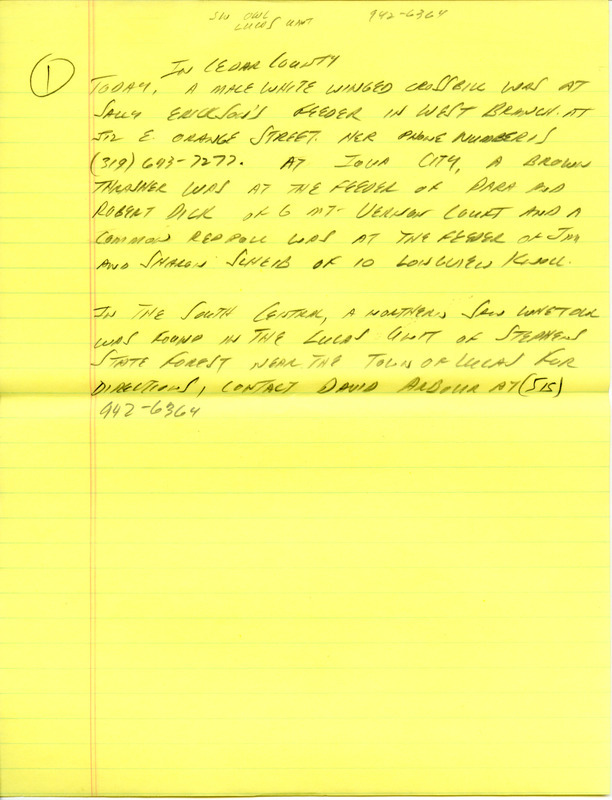 SW OWL 942-6364
LUCAS UNIT
1
IN CEDAR COUNTY
TODAY, A MALE WHITE WINGED CROSSBILL WAS AT
SALLY ERICKSON'S FEEDER IN WEST BRANCH AT
512 E ORANGE STREET. HER PHONE NUMBER IS
(319) 643-7277. AT IOWA CITY, A BROWN
THRASHER WAS AT THE FEEDER OF DARA AND
ROBERT DICK OF 6 MT. VERNON COURT AND A
COMMON REDPOLL WAS AT THE FEEDER OF JIM
AND SHARON SCHEIB OF 10 LONGVIEW KNOLL.
IN THE SOUTH CENTRAL, A NORTHERN SAW WHET OWL
WAS FOUND IN THE LUCAS UNIT OF STEPHENS
STATE FOREST NEAR THE TOWN OF LUCAS FOR
DIRECTIONS, CONTACT DAVID ARBOUR AT (515)
942-6364